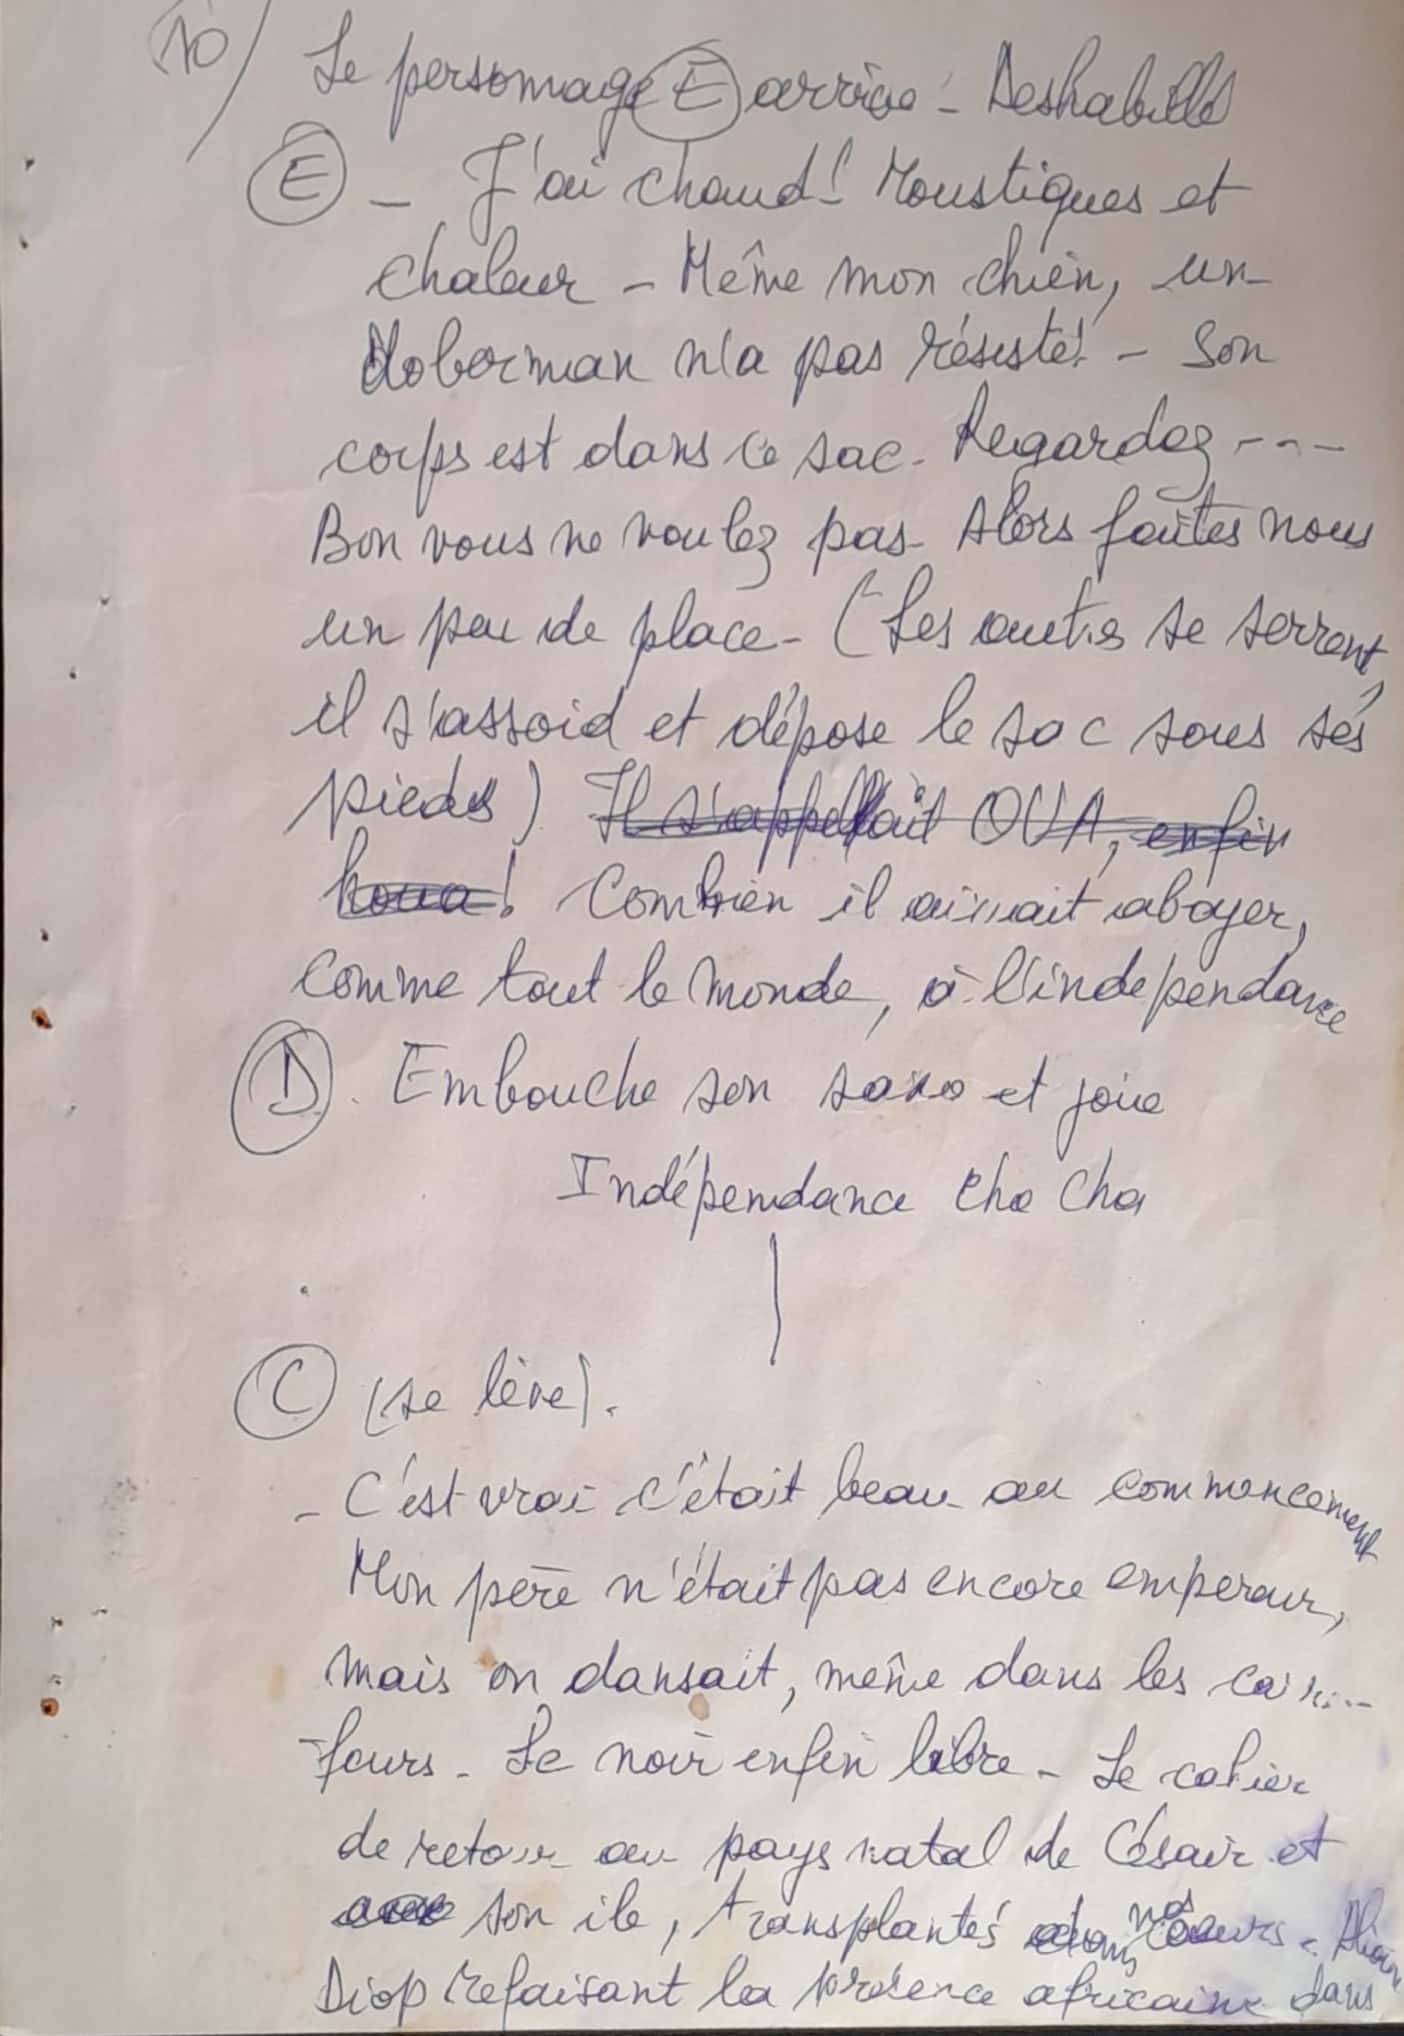 10/ Le personnage (E) arrive - Deshabillé
(E) - J'ai chaud! Moustiques et
chaleur - Même mon chien, un
doberman n'a pas résisté! - Son
corps est dans ce sac. Regardez ---
Bon vous ne voulez pas. Alors faites nous
un peu de place - (Les autres se serrent,
il s'assoid et dépose le sac sous ses
pieds) Il s'appellait OUA, enfin
houa! Combien il aimait aboyer,
comme tout le monde, à l'independance
(D). Embouche son saxo et joue
Indépendance cha cha
(C) (se lève).
- C'est vrai c'était beau au commencement
Mon père n'était pas encore empereur,
mais on dansait, même dans les
fours - Le noir enfin libre - Le cahier
de retour au pays natal de Césair et
son ile, transplantés dans nos coeurs - Alioun
Diop refaisant la présence africaine dans